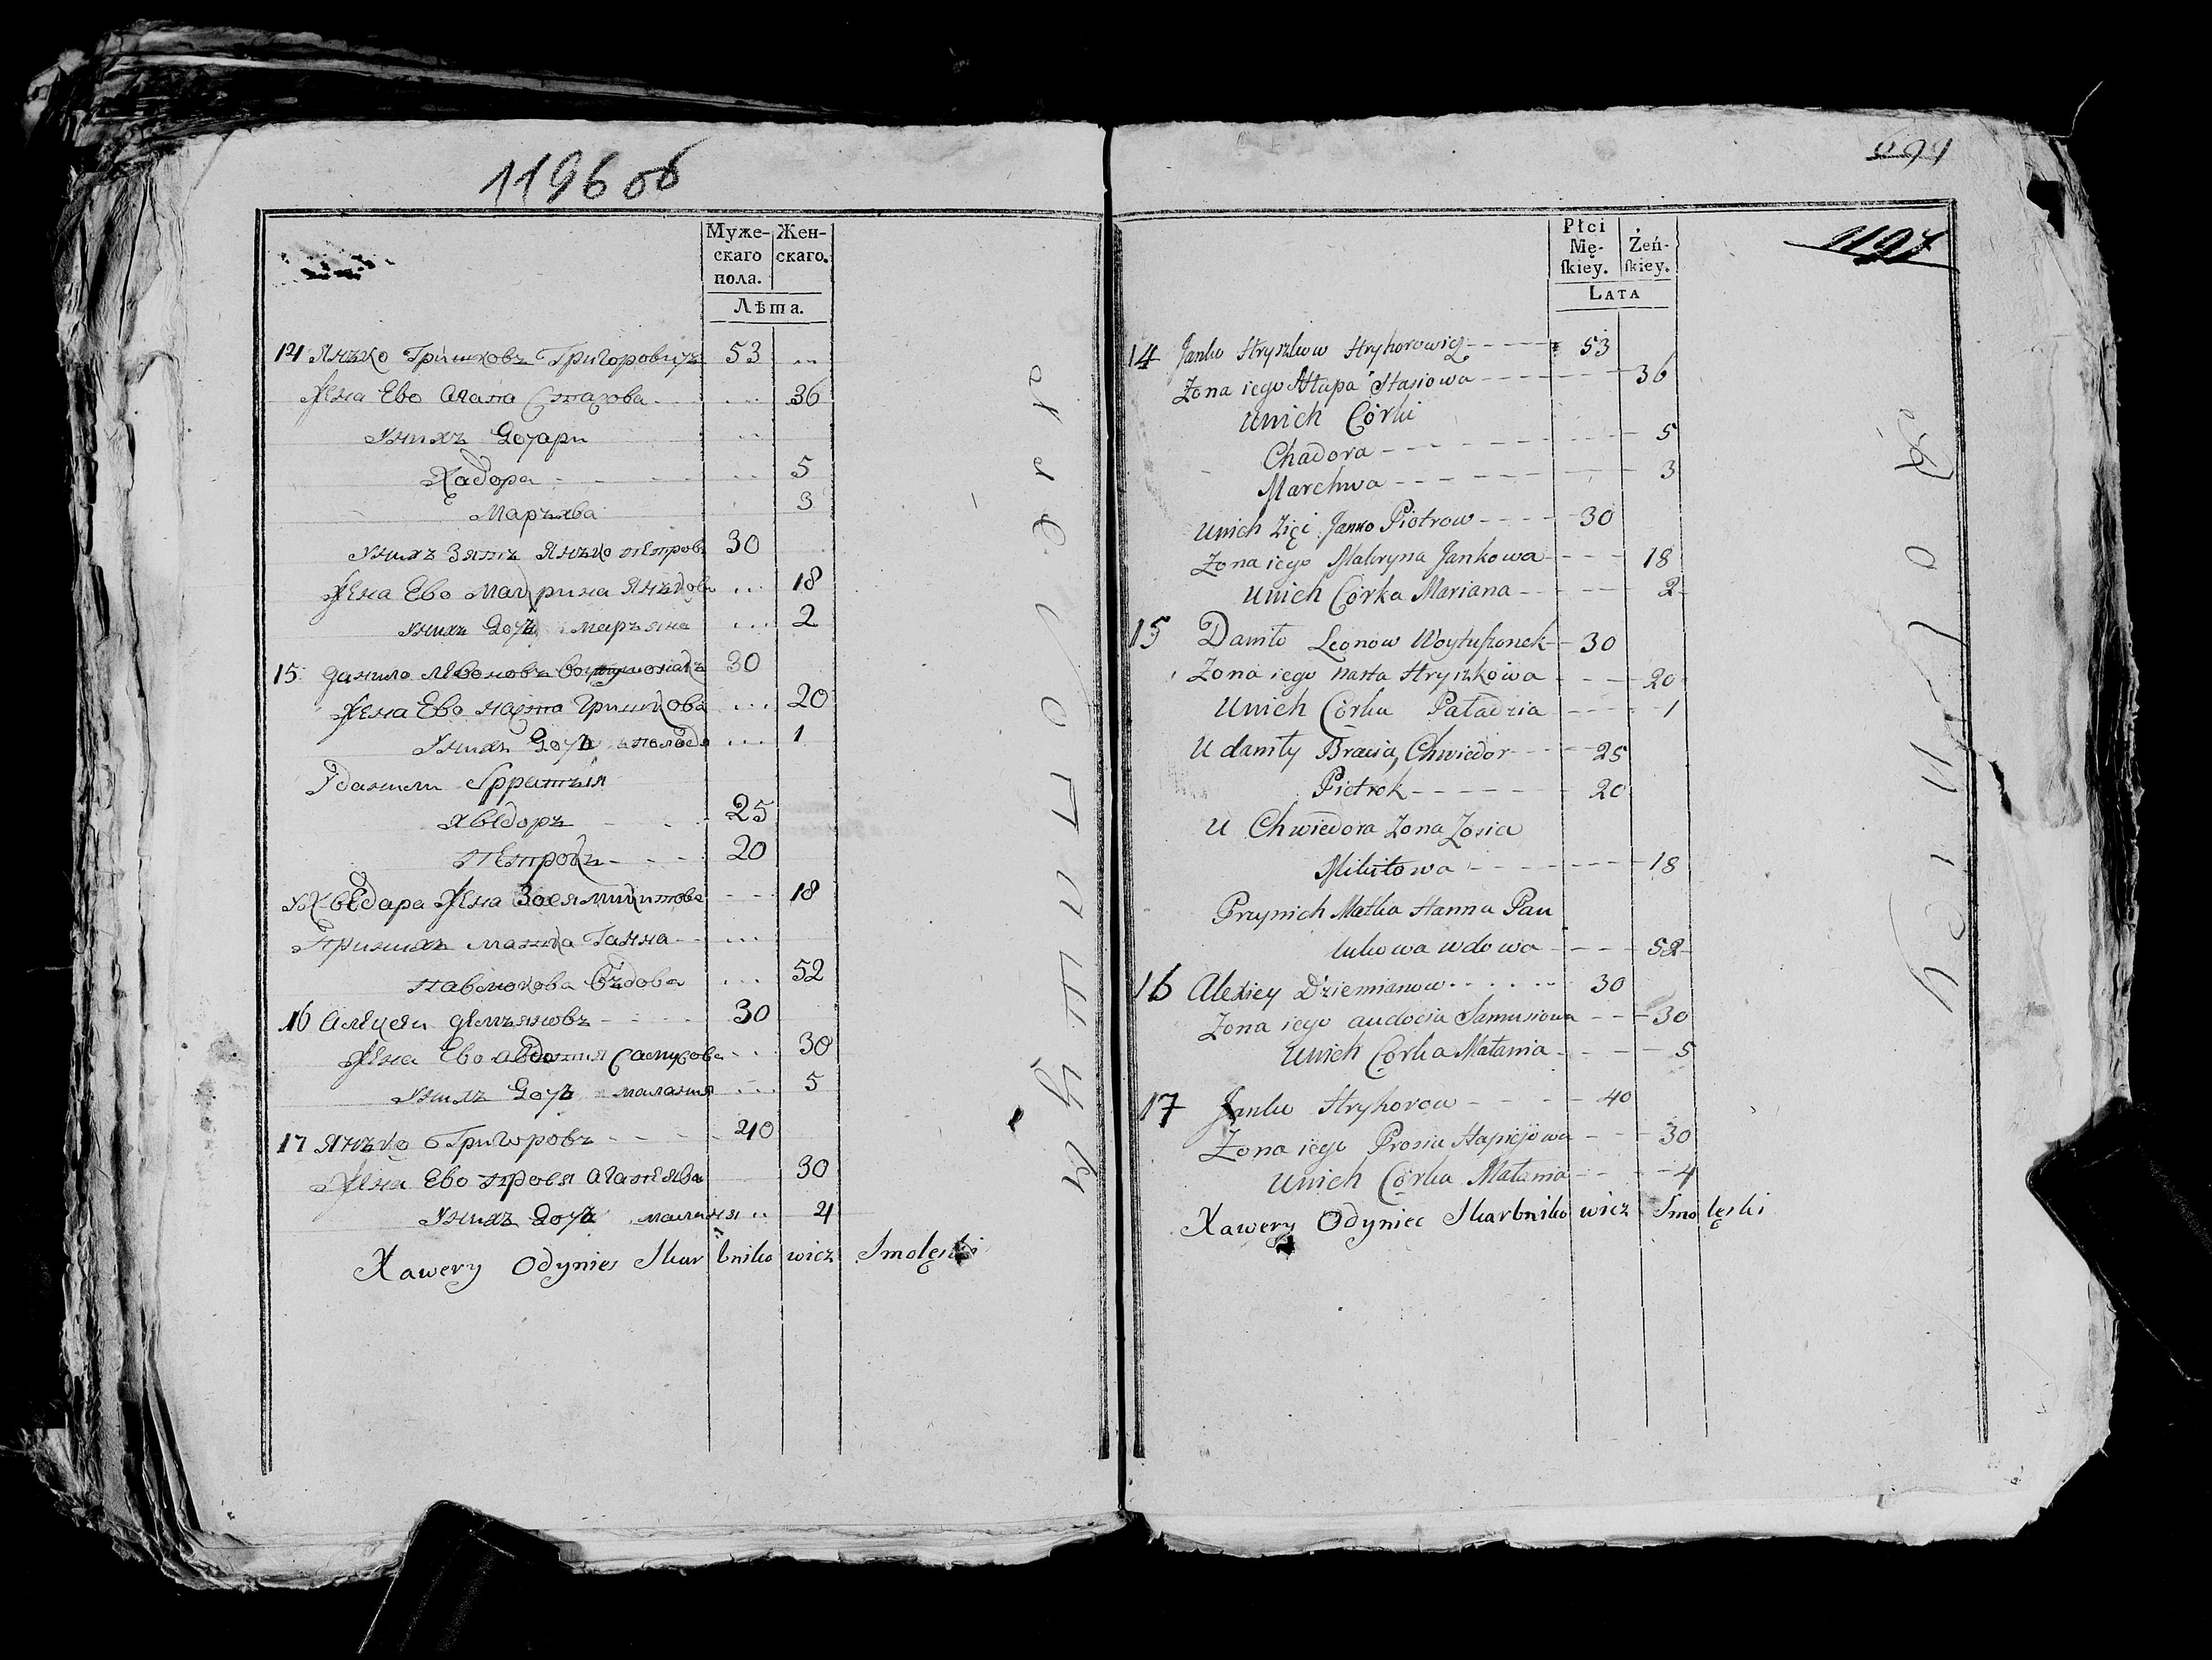 1196 об
Муже-
скаго
пола.
Жен-
скаго.
Лѣта.
14 Янько Гришковъ Григоровичъ 53
Жена Ево Агапа Стасова 36
Унихъ Дочари
Хадора 5
Маръхва 3
Унихъ Зять Янъко петровъ 30
Жена Ево Макрина Янъкова 18
Унихъ Дочь маръяна 2
15 Данило Левоновъ 30
Жена Ево наста Гришкова 20
Унихъ Дочь 1
Уданили Братья
Хведоръ 25
Петрокъ 20
Ухведара Жена Зося микитова 18
Принихъ матка Ганна
павлюкова въдова 52
16 Алецеи Демъяновъ 30
Жена Ево авдотия Самусова 30
Унихъ Дочь малания 5
17 Янъко Григоровъ 40
Жена Ево прося агапеява 30
Унихъ Дочь малання 4
Xawery Odyniec Skarbnikowicz Smoleski
694
1197
Płci
Mę-
skiey.
Żeń-
skiey.
Lata
14 Janko Hryszkow Hryhorowicz 53
Zona iego Ahapa Stasiowa 36
Unich Córki
Chadora 5
Marchwa 3
Unich Zięć Janko Piotrow 30
Zona iego Makryna Jankowa 18
Unich Córka Mariana 2
15 Daniło Leonow Woytuszonek 30
Zona iego nasta Hryszkowa 20
Unich Córka Paładzia 1
U daniły Bracia, Chwiedor 25
Pietrok 20
U Chwiedora Zona Zosia
Mikitowa 18
Przynich Matka Hanna Pau
lukowa wdowa 52
16 Alexiey Dziemianow 30
Zona iego audocia Samusiowa 30
Unich Córka Małania 5
17 Janko Hryhorow 40
Zona iego Prosia Hapiejowa 30
Unich Córka Małania 4
Xawery Odyniec Skarbnikowicz Smoleski